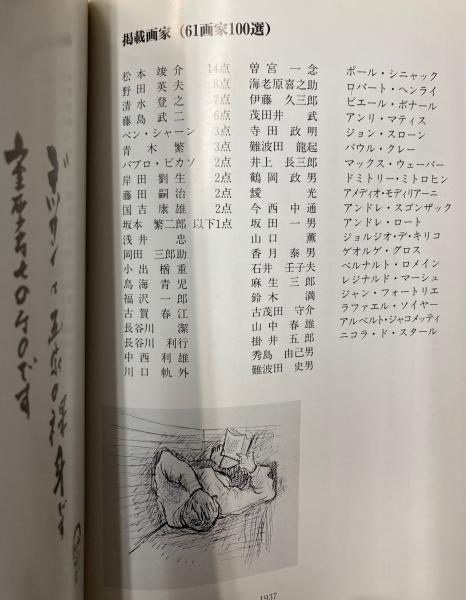 掲載画家（61画家100選）
松本竣介 14点
野田英夫 8点
清水登之 7点
藤島武二 6点
ベン・シャーン 3点
青木繁 3点
パブロ・ピカソ 2点
岸田劉生 2点
藤田嗣治 2点
国吉康雄 2点
坂本繁二郎 以下1点
浅井忠
岡田三郎助
小出楢重
鳥海青児
福沢一郎
古賀春江
長谷川潔
長谷川利行
中西利雄
川口軌外
曽宮一念
海老原喜之助
伊藤久三郎
茂田井武
寺田政明
難波田龍起
井上長三郎
鶴岡政男
靉光
今西中通
坂田一男
山口薫
香月泰男
石井壬子夫
麻生三郎
鈴木満
古茂田守介
山中春雄
掛井五郎
秀島由己男
難波田史男
ポール・シニャック
ロバート・ヘンライ
ピエール・ボナール
アンリ・マティス
ジョン・スローン
パウル・クレー
マックス・ウェーバー
ドミトリー・ミトロヒン
アメディオ・モディリアーニ
アンドレ・スゴンザック
アンドレ・ロート
ジョルジオ・デ・キリコ
ゲオルゲ・グロス
ベルナルト・ロメイン
レジナルド・マーシュ
ジャン・フォートリエ
ラファエル・ソイヤー
アルベルト・ジャコメッティ
ニコラ・ド・スタール
1937